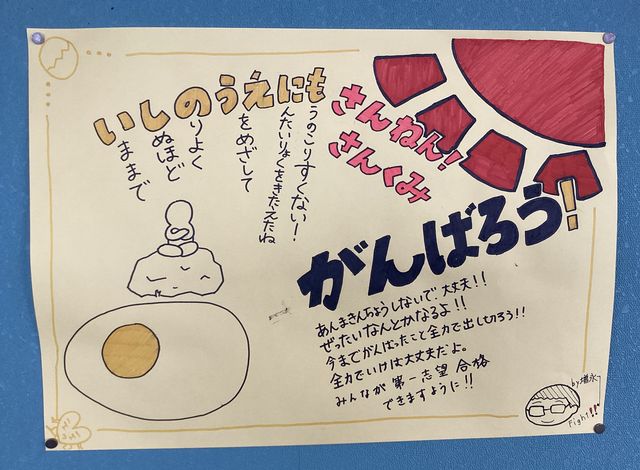 いしのうえにも
うのこりすくない!
んたいりょくをきたえたね
をめざして
りよく
ぬほど
ままで
さんねん!
さんくみ
がんばろう!
あんまきんちょうしないで大丈夫!!
ぜったいなんとかなるよ!!
今までがんばったこと全力で出し切ろう!!
全力でいけば大丈夫だよ。
みんなが第一志望合格
できますように!!
by 増永
Fight!!